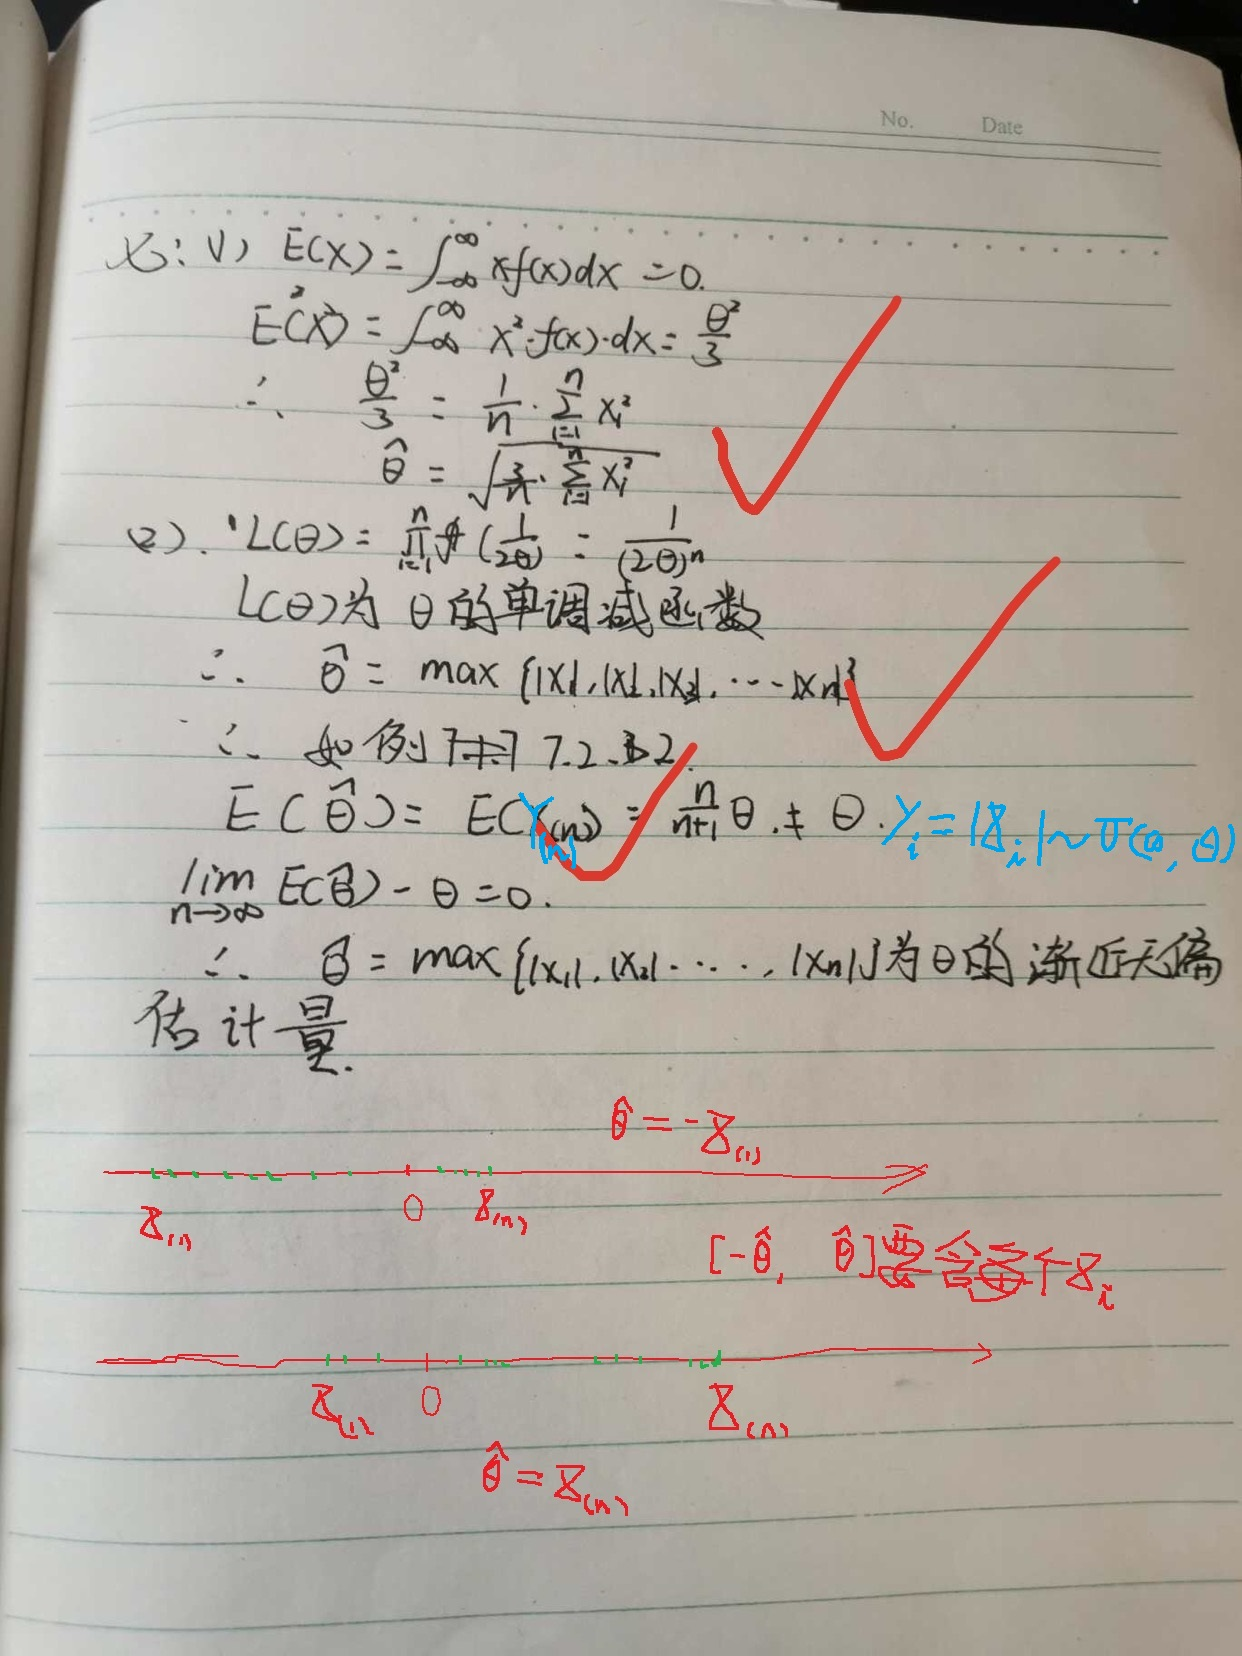 No. Date
七: (1) E(X) = ∫_{-∞}^{∞} x f(x) dx = 0.
E(X²) = ∫_{-∞}^{∞} x²·f(x)·dx = θ²/3
∴ θ²/3 = 1/n · Σ_{i=1}^{n} x_i²
θ̂ = √(3/n · Σ_{i=1}^{n} x_i²)
(2). L(θ) = Π_{i=1}^{n} (1/2θ) = 1/(2θ)^n
L(θ)为 θ 的单调减函数
∴ θ̂ = max {|X|, |X|, |X₃|, ⋯ |Xn|}
∴ 如例 7.2.2.
E(θ̂) = E(Y_(n)) = n/(n+1) θ ≠ θ. Y_i = |X_i| ~ U(0, θ)
lim_{n→∞} E(θ̂) - θ = 0.
∴ θ̂ = max {|X₁|, |X₂| ⋯⋯, |Xn|} 为 θ 的 渐近无偏
估计量.
θ̂ = -X_(1)
X_(1) 0 X_(n)
[-θ̂, θ̂] 要含每个 X_i
X_(1) 0 X_(n)
θ̂ = X_(n)